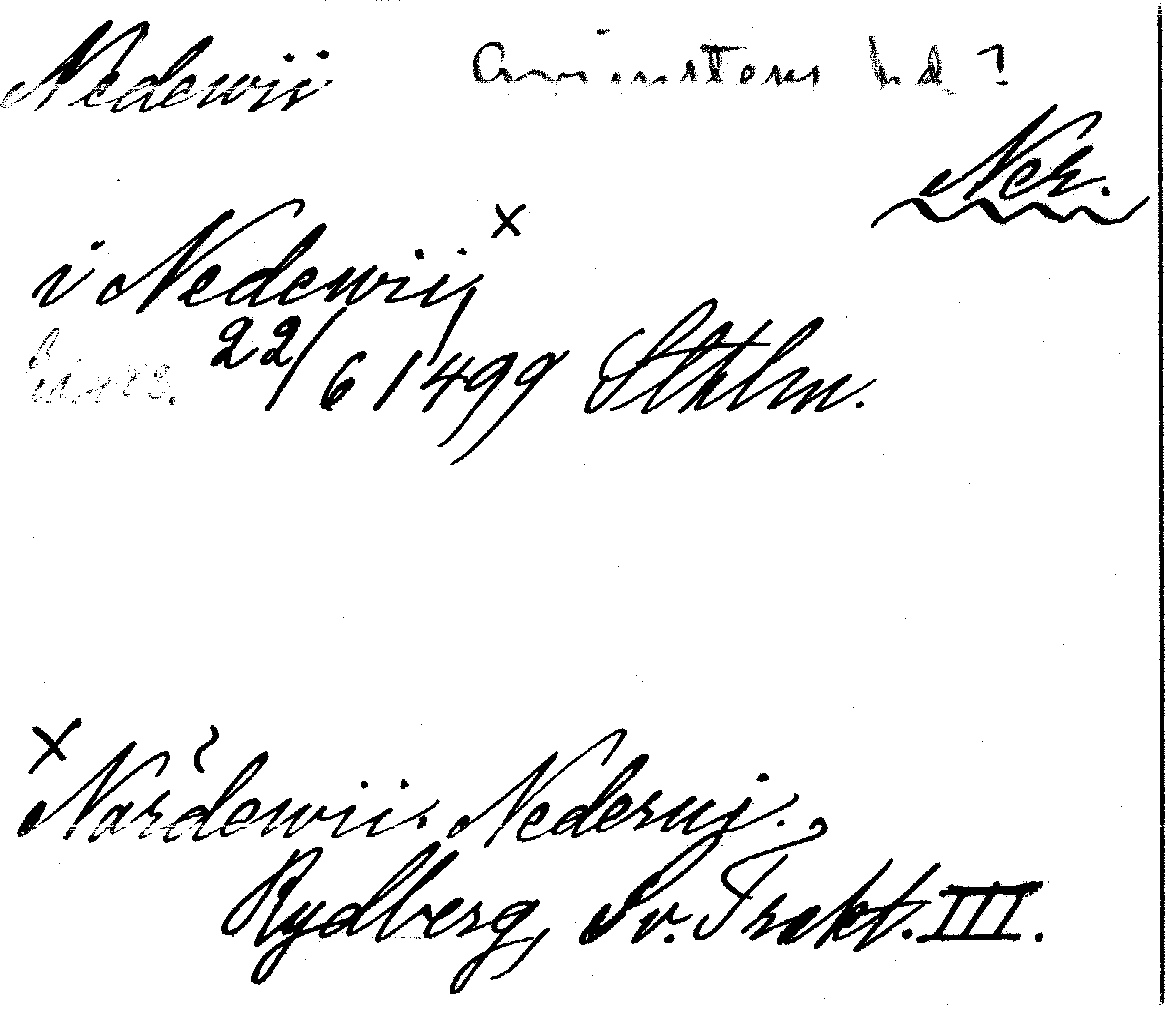 Nedewii Grimstens hd?
Nck.
i Nedewii, x
22/6 1499 Sthlm.
x Nardewii. Nederuj.
Rydberg, Sv. Trakt. III.